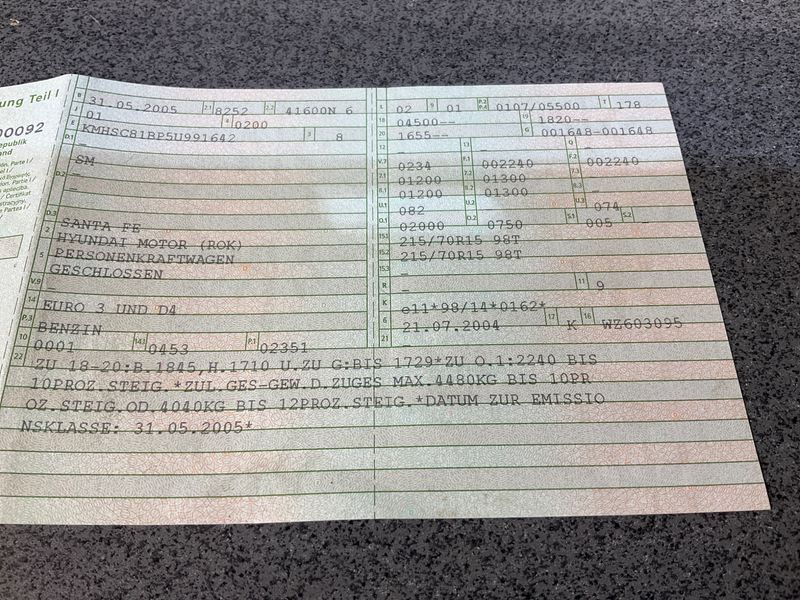 ung Teil I
00092
republik
and
B 31.05.2005 2.1 8252 2.2 41600N 6
J 01 4 0200
E KMHSC81BP5U991642 3 8
D.1 _
SM
D.2 _
_
D.3 SANTA FE
2 HYUNDAI MOTOR (ROK)
5 PERSONENKRAFTWAGEN
GESCHLOSSEN
V.9 _
14 EURO 3 UND D4
P.3 BENZIN
10 0001 14.1 0453 P.1 02351
L 02 9 01 P.2 P.4 0107/05500 T 178
18 04500-- 19 1820--
20 1655-- G 001648-001648
12 _ 13 _ Q _
V.7 0234 F.1 002240 F.2 002240
7.1 01200 7.2 01300 7.3 _
8.1 01200 8.2 01300 8.3 _
U.1 082 U.2 _ U.3 074
O.1 02000 O.2 0750 S.1 005 S.2 _
15.1 215/70R15 98T
15.2 215/70R15 98T
15.3 _
R _ 11 9
K e11*98/14*0162*
6 21.07.2004 17 K 16 WZ603095
21
22 ZU 18-20:B.1845,H.1710 U.ZU G:BIS 1729*ZU O.1:2240 BIS
10PROZ.STEIG.*ZUL.GES-GEW.D.ZUGES MAX.4480KG BIS 10PR
OZ.STEIG.OD.4040KG BIS 12PROZ.STEIG.*DATUM ZUR EMISSIO
NSKLASSE: 31.05.2005*